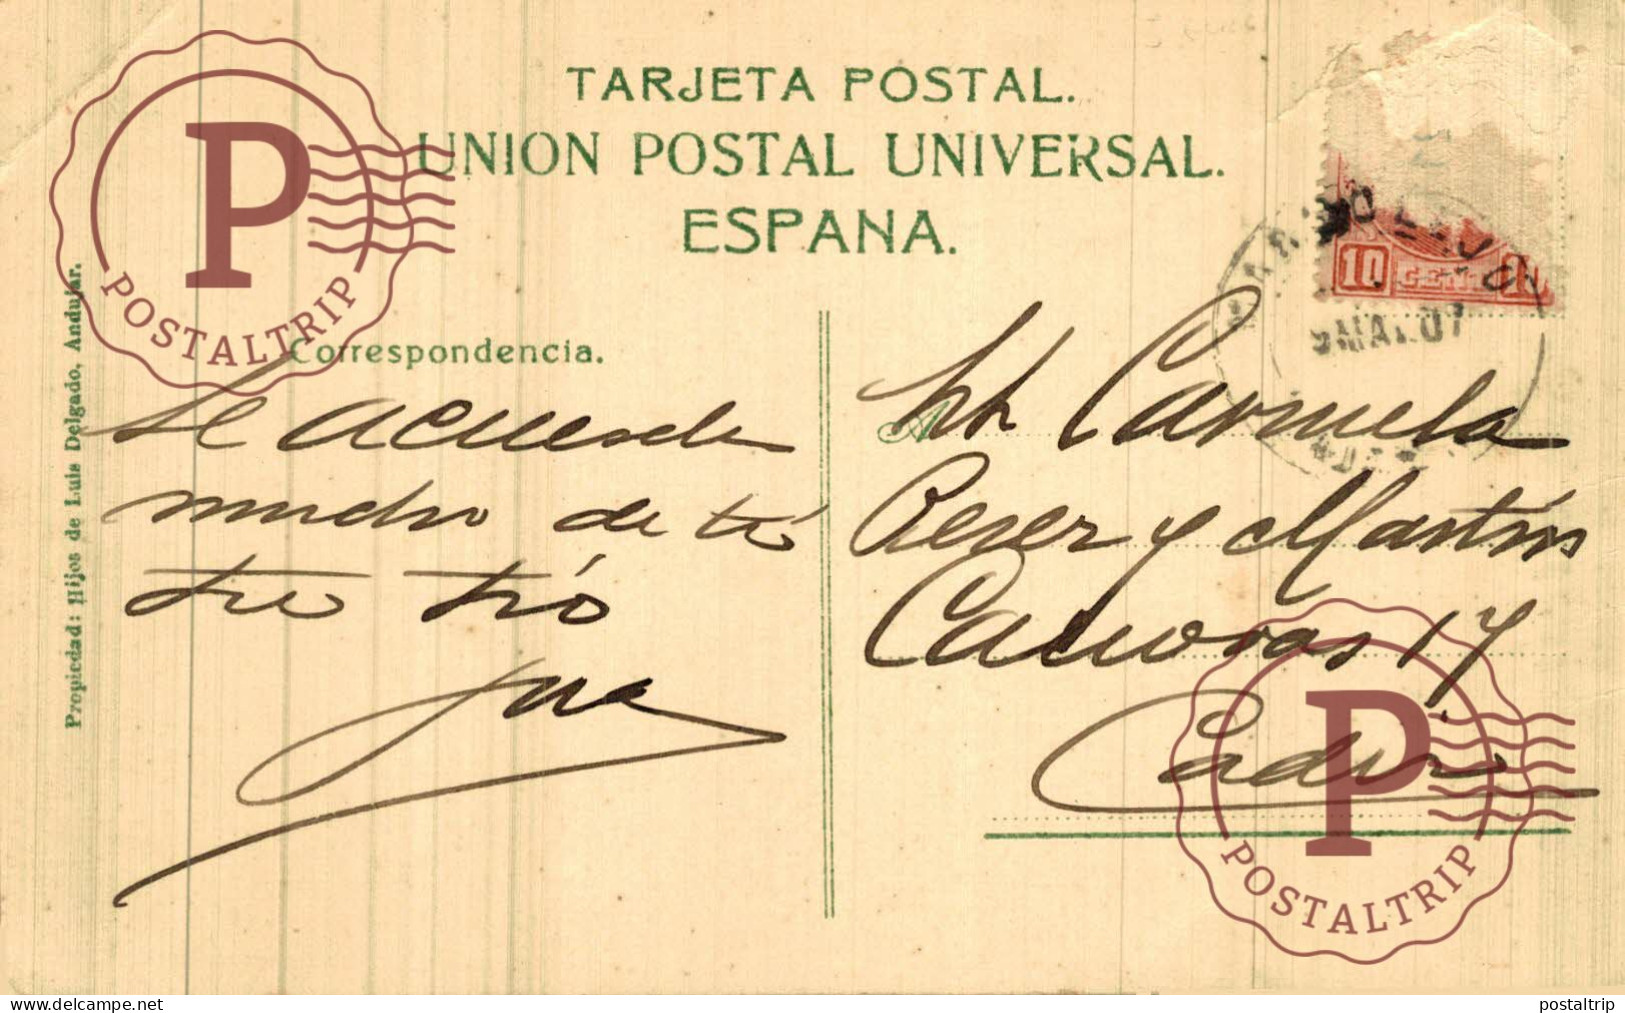 TARJETA POSTAL.
UNION POSTAL UNIVERSAL.
ESPAÑA.
P
POSTALTRIP
Propiedad: Hijos de Luis Delgado, Andujar.
Correspondencia.
Se acuerda
mucho de ti
tu tió
10 CENT
MARMOLEJO
MAR 07
A
Carmela
Perer y Martins
Canovas 17
Cadiz
P
POSTALTRIP
Delcampe.net
postaltrip